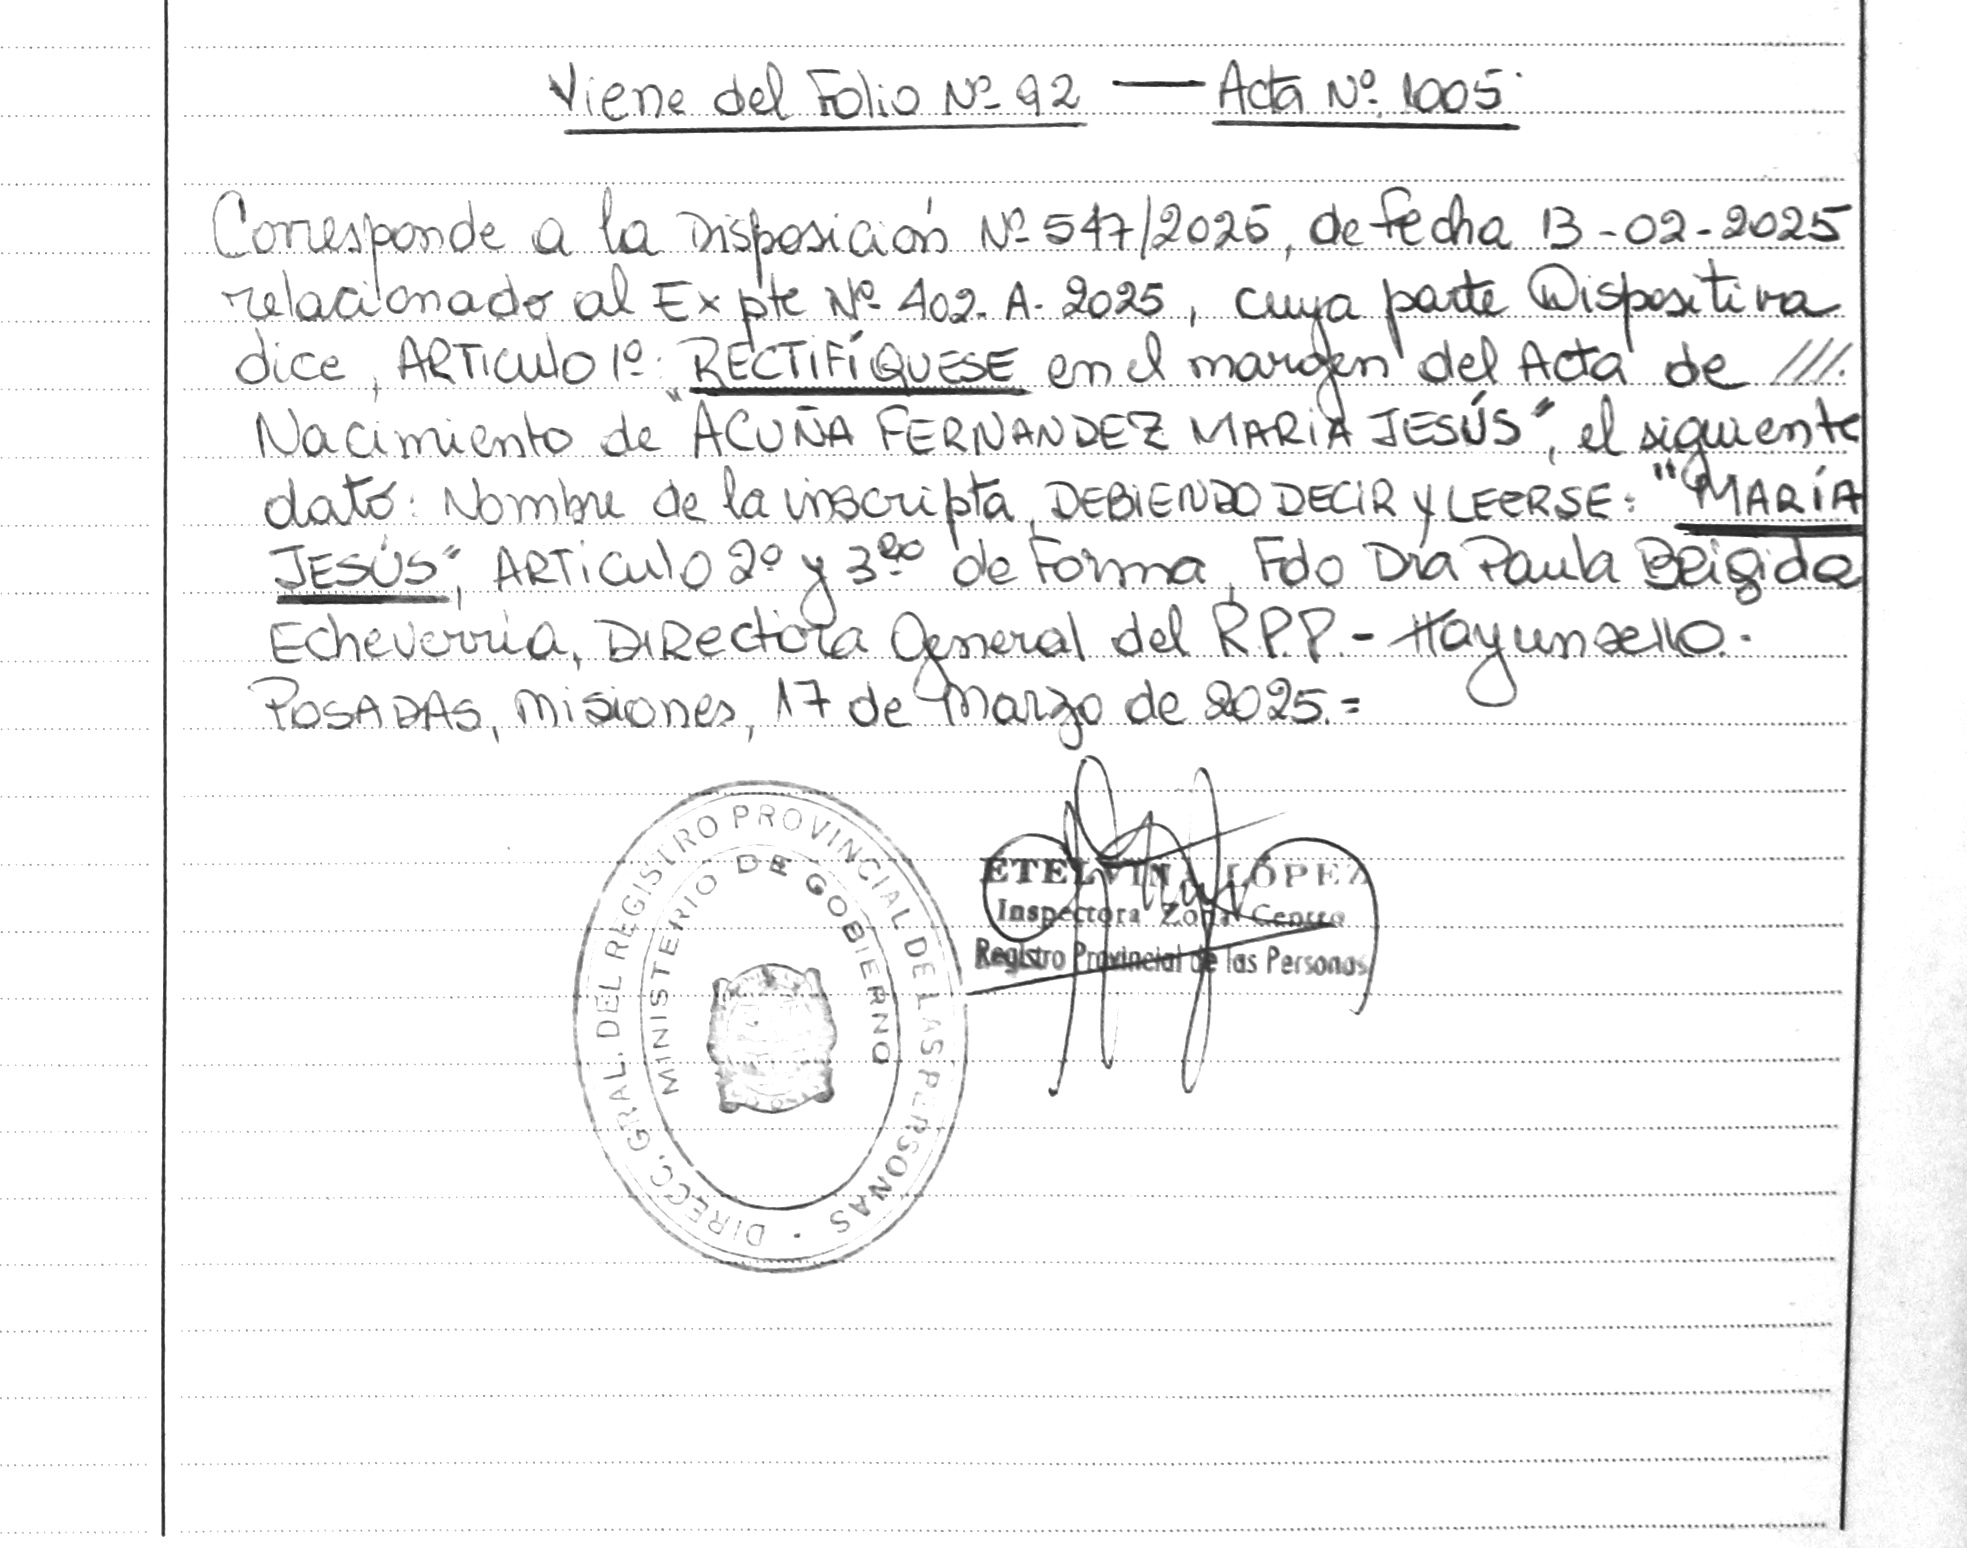 Viene del Folio Nº 92 — Acta Nº 1005.
Corresponde a la Disposición Nº 547/2025, de fecha 13-02-2025
relacionado al Expte Nº 402-A-2025, cuya parte Dispositiva
dice, ARTICULO 1º: RECTIFÍQUESE en el margen del Acta de ///.
Nacimiento de "ACUÑA FERNANDEZ MARIA JESÚS", el siguiente
dato: Nombre de la inscripta, DEBIENDO DECIR y LEERSE: "MARÍA
JESÚS", ARTICULO 2º y 3ero de Forma, Fdo Dra Paula Brigida
Echeverria, DIRectora General del R.P.P - Hay un sello.
POSADAS, Misiones, 17 de Marzo de 2025.=
DIRECC. GRAL. DEL REGISTRO PROVINCIAL DE LAS PERSONAS
MINISTERIO DE GOBIERNO
ETELVINA LÓPEZ
Inspectora Zona Centro
Registro Provincial de las Personas